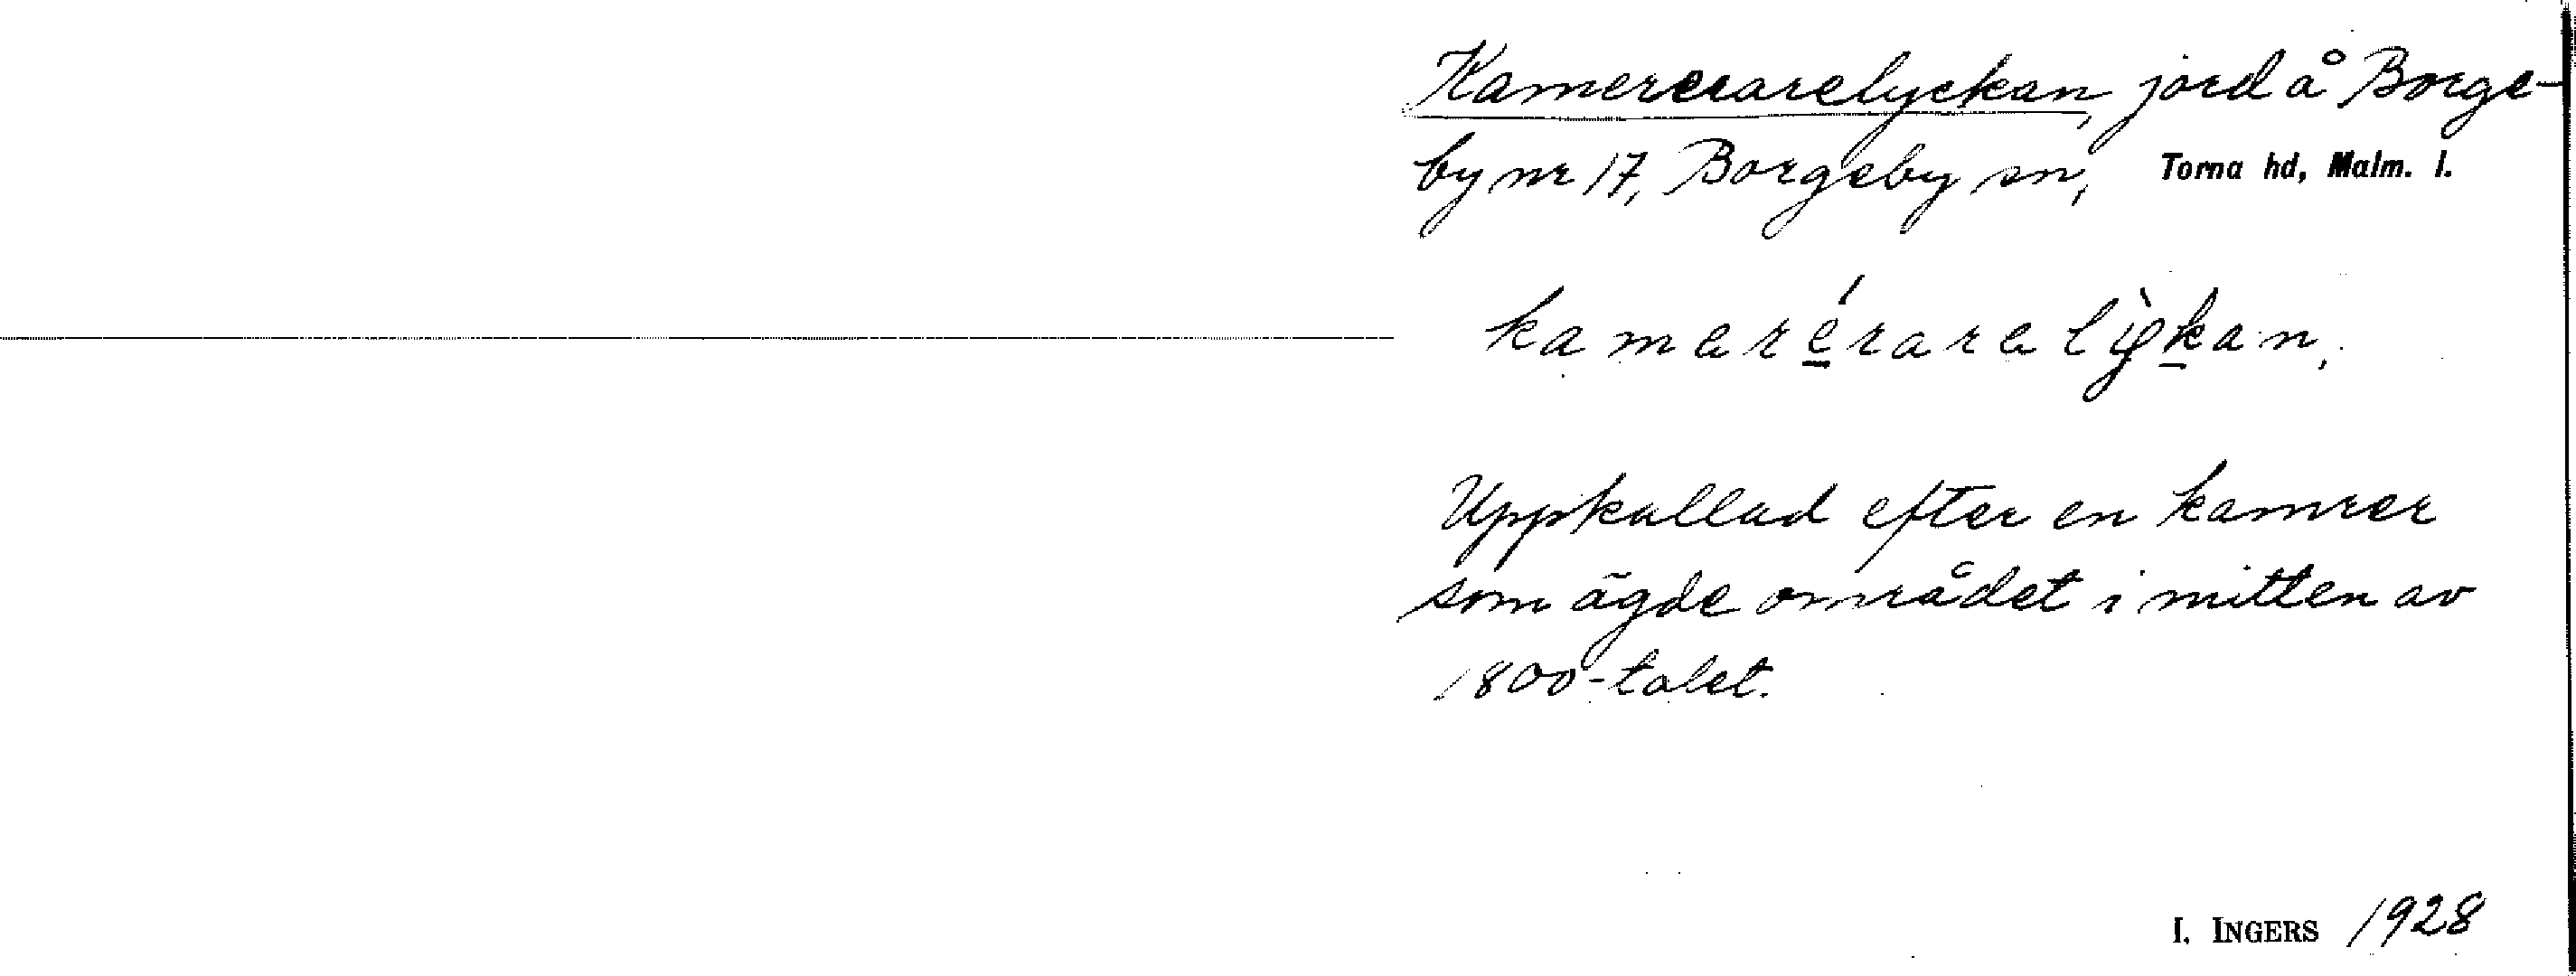 Kamererarelyckan, jord å Borge-
by nr 17, Borgeby sn, Torna hd, Malm. l.
kamerérarelỳkan,
Uppkallad efter en kamrer
som ägde området i mitten av
1800-talet.
I. INGERS 1928